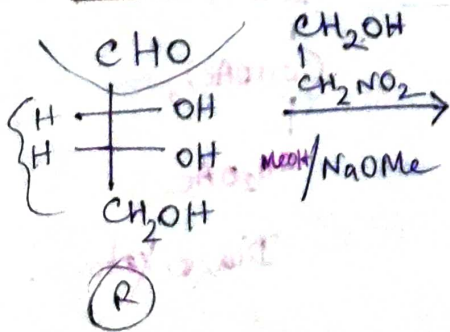 CHO
H OH
H OH
CH₂OH
R
CH₂OH
CH₂NO₂
MeOH/NaOMe